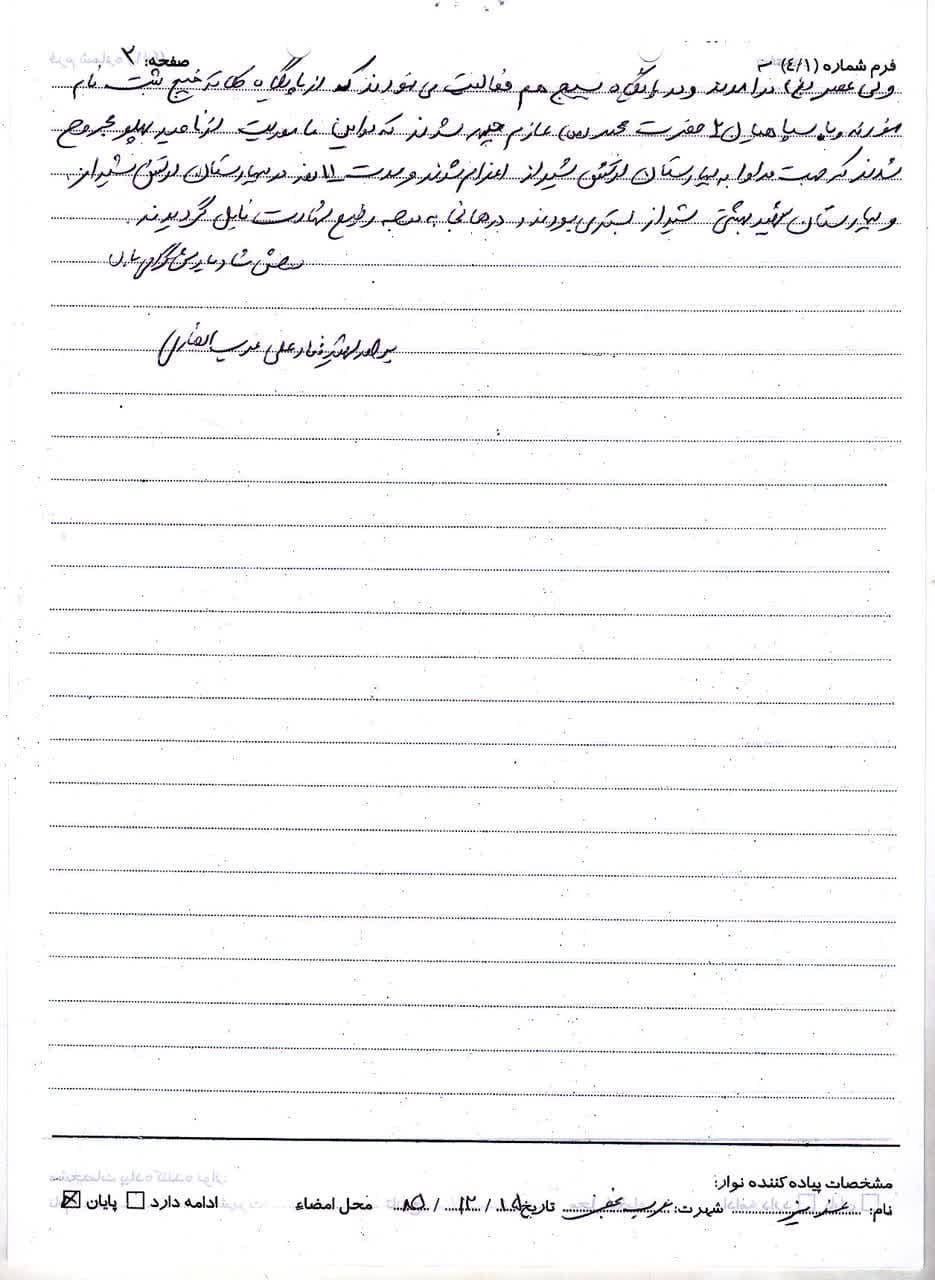 فرم شماره (٤/١) صفحه: ٢
ولی عصر (عج) درآمدند و در پایگاه بسیج هم فعالیت می نمودند که از پایگاه کلاته خیج ثبت نام
نمودند و با سپاهیان حضرت محمد (ص) عازم جبهه شدند که در این ماموریت از ناحیه پهلو مجروح
شدند که جهت مداوا به بیمارستان ارتش شیراز اعزام شدند و مدت ١١ روز در بیمارستان ارتش شیراز
و بیمارستان شهید بهشتی شیراز بستری بودند و در همانجا به درجه رفیع شهادت نایل گردیدند.
روحش شاد و یادش گرامی باد
علی عرب
مشخصات پیاده کننده نوار:
نام: عزیز شهرت: عرب تاریخ ١٥ / ١٢ / ٨٥ محل امضاء ادامه دارد پایان